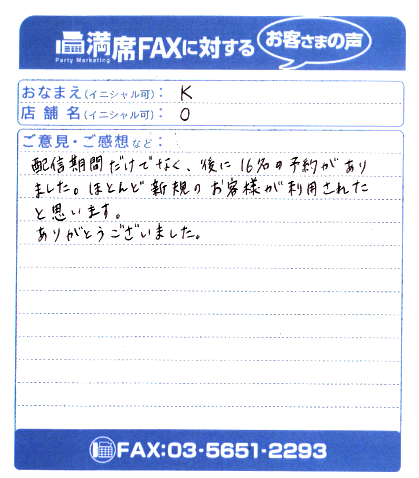 満席FAXに対する
お客さまの声
Party Marketing
おなまえ(イニシャル可): K
店舗名(イニシャル可): O
ご意見・ご感想など:
配信期間だけでなく、後に16名の予約があり
ました。ほとんど新規のお客様が利用された
と思います。
ありがとうございました。
FAX:03-5651-2293